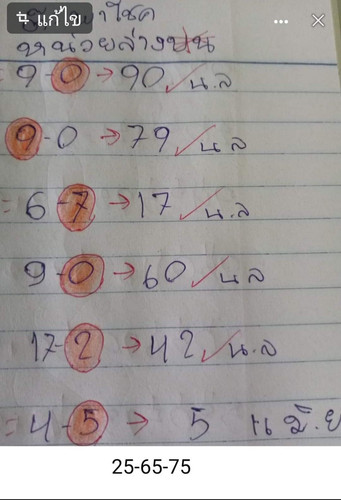 แก้ไข
หน่วยล่างบน
= 9-0 → 90 ✓ น.ล
9-0 → 79 ✓ น.ล
= 6-7 → 17 ✓ น.ล
9-0 → 60 ✓ น.ล
17-2 → 42 ✓ น.ล
= 4-5 → 5
25-65-75